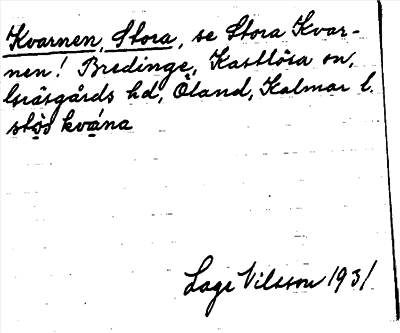 Kvarnen, Stora, se Stora Kvar-
nen! Bredinge, Kastlösa sn,
Gräsgårds hd, Öland, Kalmar l.
stōs kvána
Lage Nilsson 1931